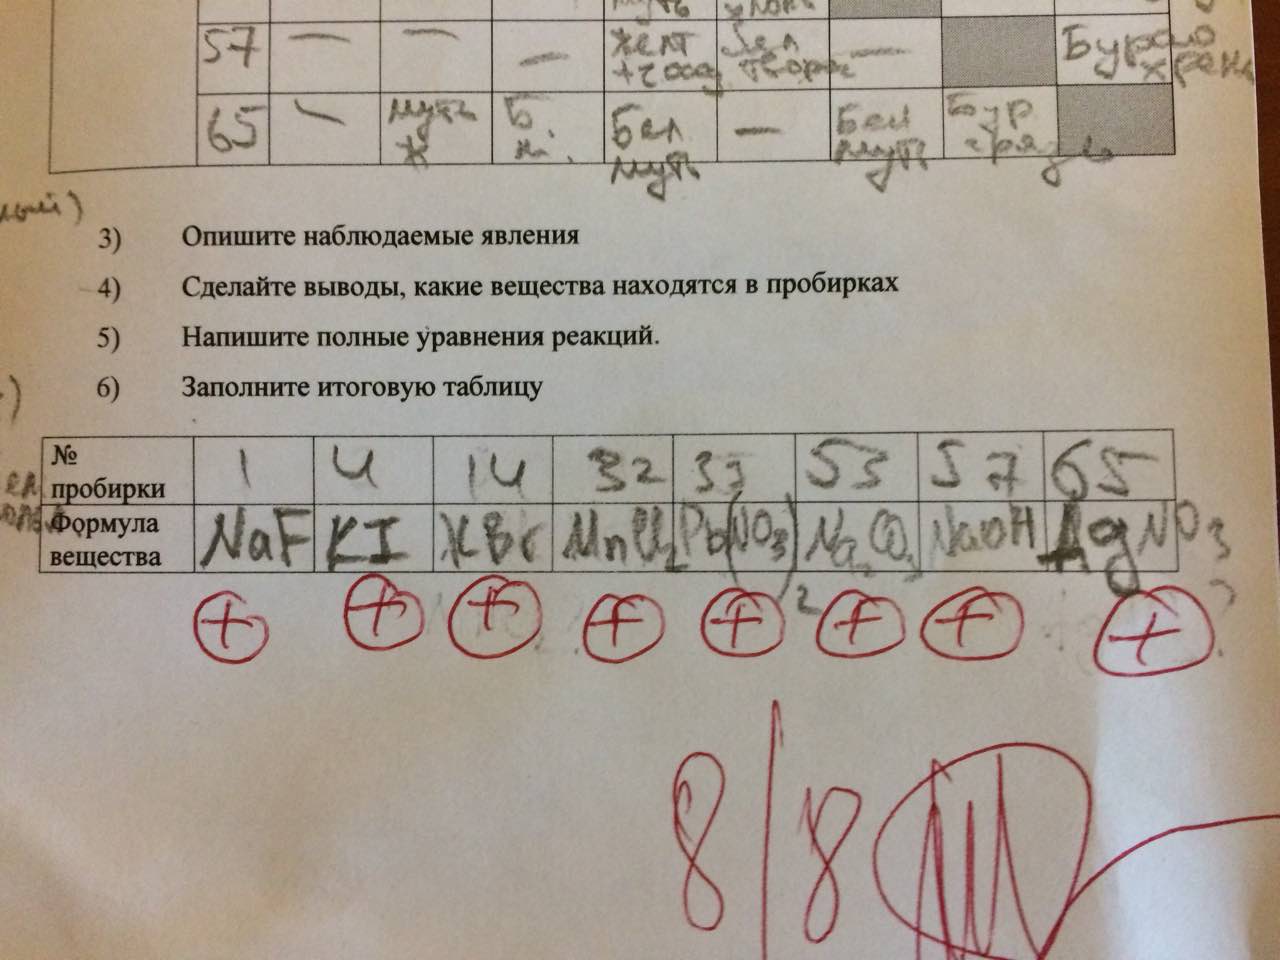 муть
57 — — — желт +чосу бел творж — Бурого хрень
65 — муть ж Б. н. Бел муть — Бел муть Бур грязь
3) Опишите наблюдаемые явления
4) Сделайте выводы, какие вещества находятся в пробирках
5) Напишите полные уравнения реакций.
6) Заполните итоговую таблицу
№ пробирки 1 4 14 32 33 53 57 65
Формула вещества NaF KI KBr MnCl2 Pb(NO3)2 Na2CO3 NaOH AgNO3
+ + + + + + + +
8/8